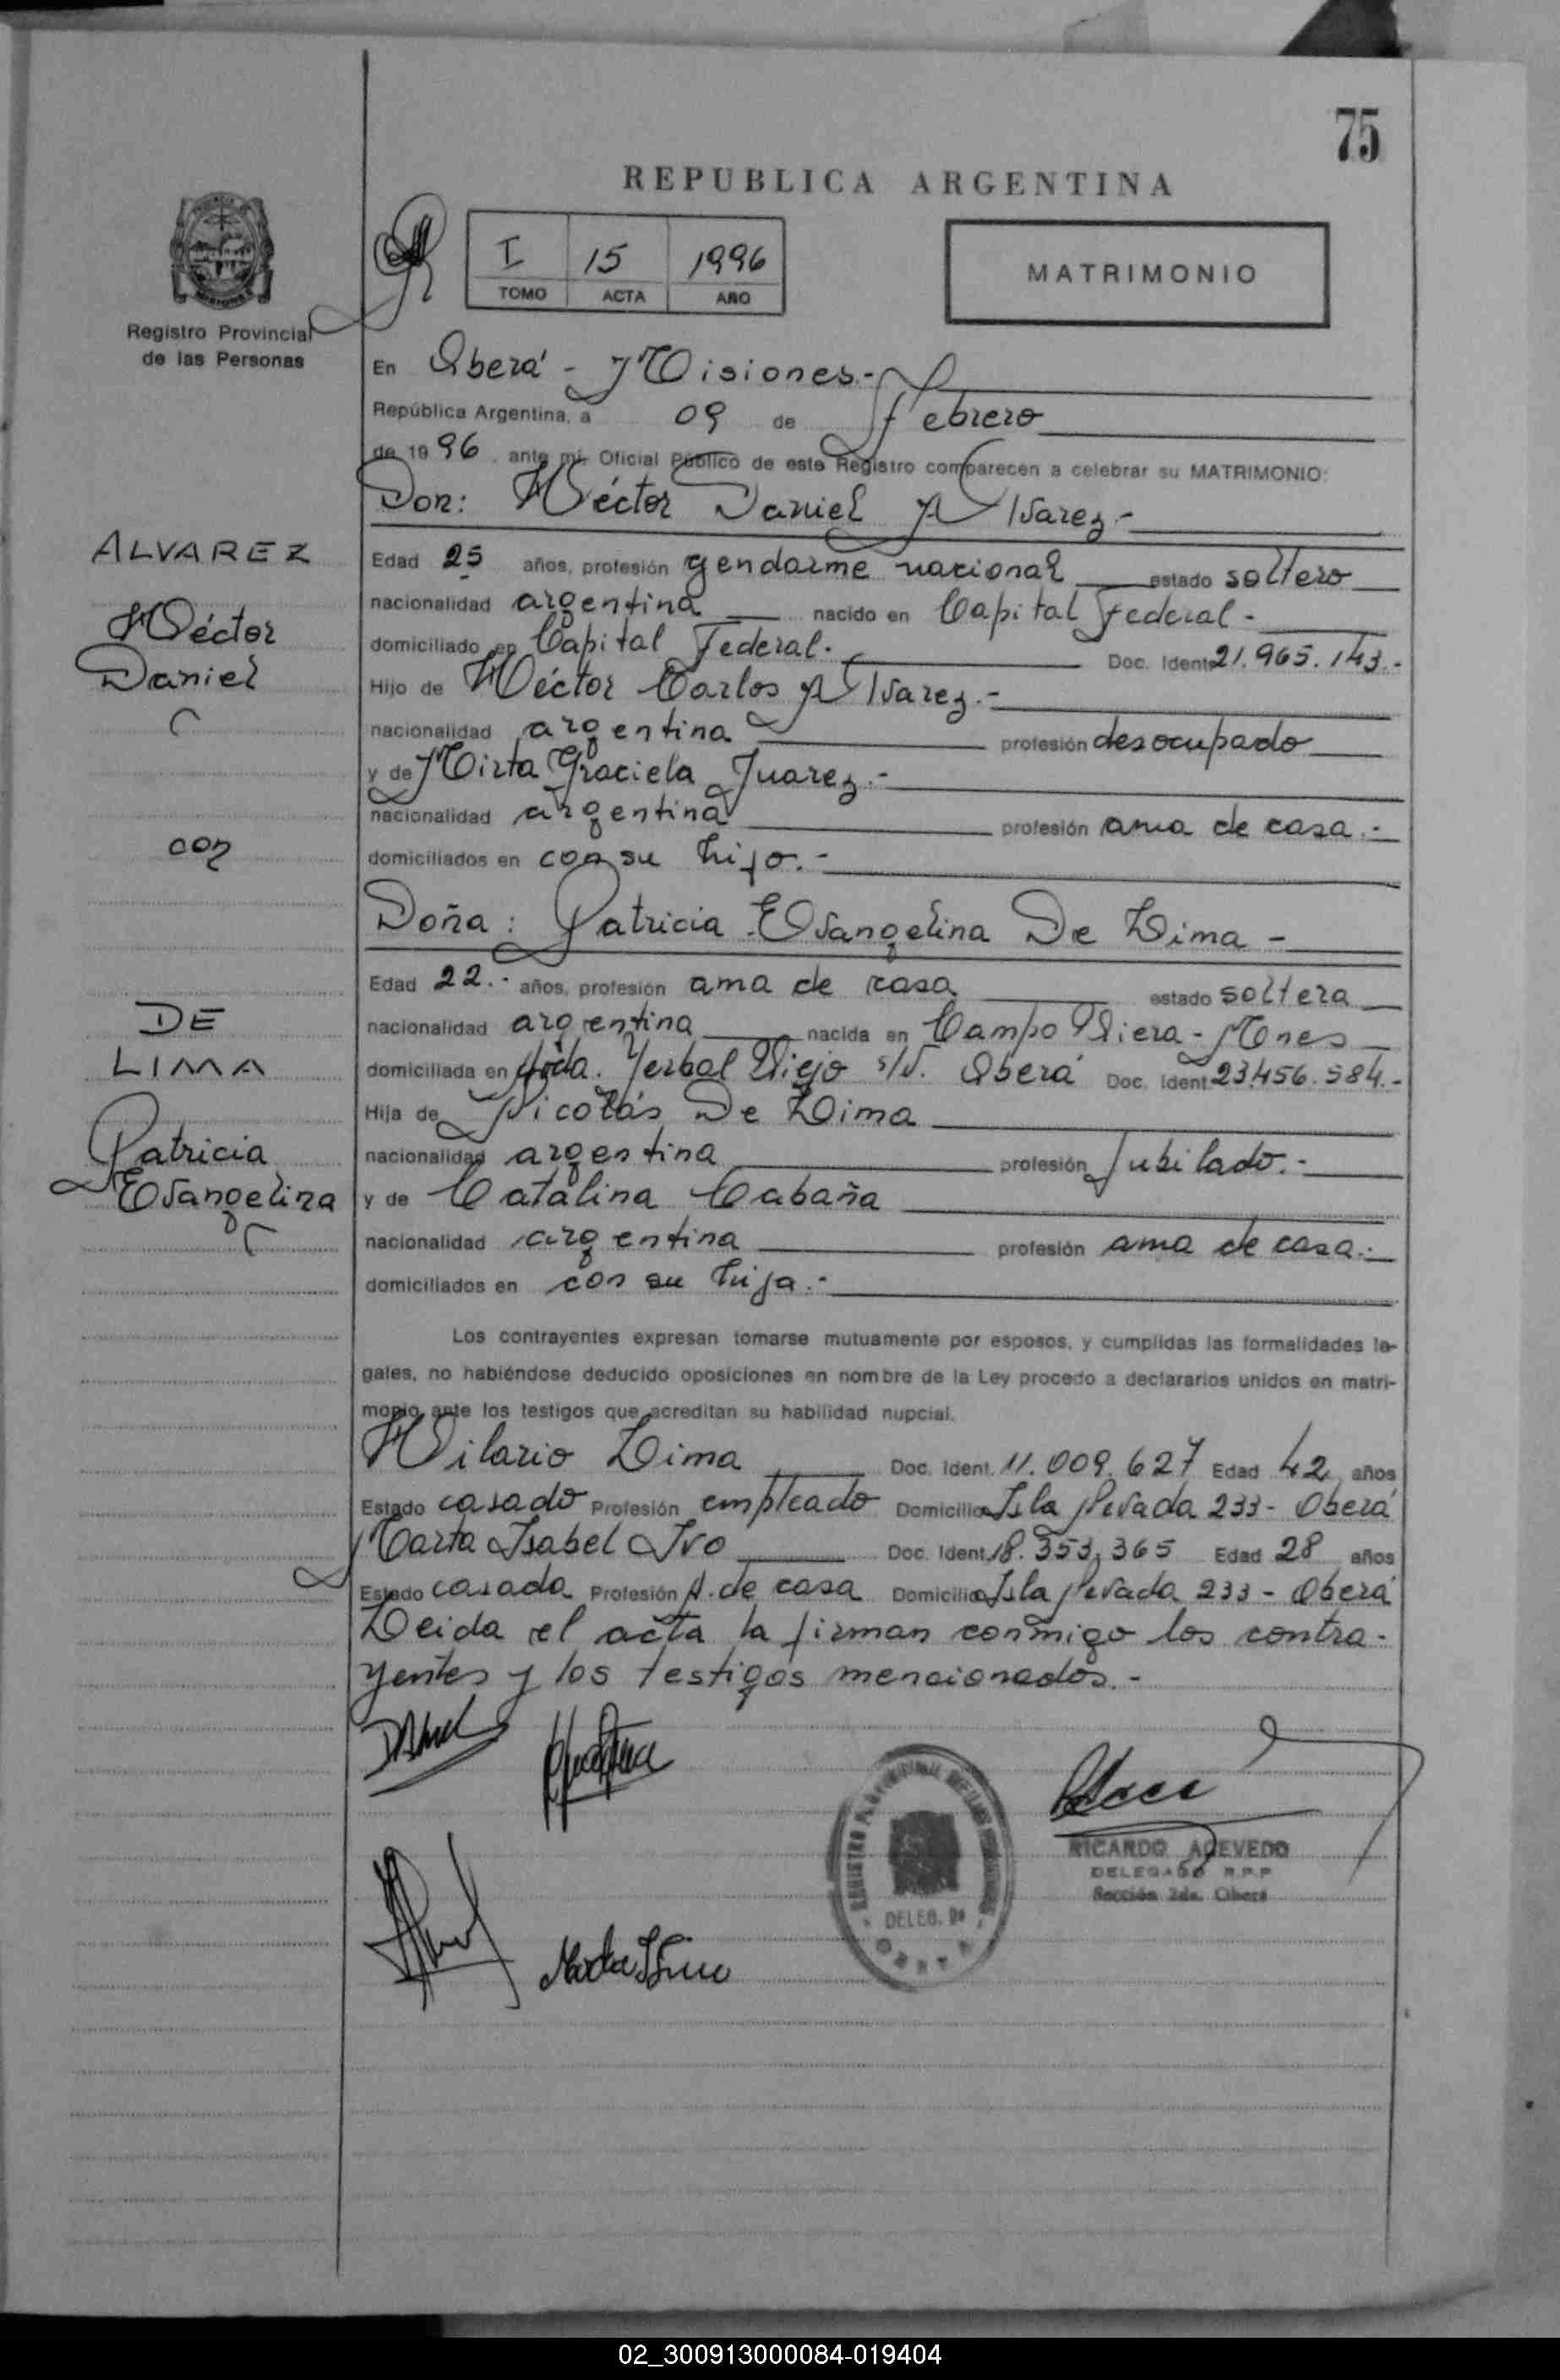 75
REPUBLICA ARGENTINA
I 15 1996
TOMO ACTA AÑO
MATRIMONIO
MISIONES
Registro Provincial
de las Personas
En Oberá - Misiones.-
República Argentina, a 09 de Febrero
de 1996, ante mí, Oficial Público de este Registro comparecen a celebrar su MATRIMONIO:
Don: Héctor Daniel Alvarez.-
ALVAREZ
Héctor
Daniel
con
DE
LIMA
Patricia
Evangelina
Edad 25 años, profesión gendarme nacional estado soltero
nacionalidad argentina nacido en Capital Federal.-
domiciliado en Capital Federal.- Doc. Ident. 21.965.143.-
Hijo de Héctor Carlos Alvarez.-
nacionalidad argentina profesión desocupado
y de Mirta Graciela Juarez.-
nacionalidad argentina profesión ama de casa.-
domiciliados en con su hijo.-
Doña: Patricia Evangelina De Lima -
Edad 22.- años, profesión ama de casa estado soltera
nacionalidad argentina nacida en Campo Viera - Mnes
domiciliada en Avda. Yerbal Viejo s/N. Oberá Doc. Ident. 23.456.584.-
Hija de Nicolás De Lima
nacionalidad argentina profesión Jubilado.-
y de Catalina Cabaña
nacionalidad argentina profesión ama de casa.-
domiciliados en con su hija.-
Los contrayentes expresan tomarse mutuamente por esposos, y cumplidas las formalidades le-
gales, no habiéndose deducido oposiciones en nombre de la Ley procedo a declararlos unidos en matri-
monio ante los testigos que acreditan su habilidad nupcial.
Hilario Lima Doc. Ident. 11.009.627 Edad 42 años
Estado casado Profesión empleado Domicilio Isla Nevada 233 - Oberá
Marta Isabel Ivo Doc. Ident. 18.353.365 Edad 28 años
Estado casada Profesión A. de casa Domicilio Isla Nevada 233 - Oberá
Leida el acta la firman conmigo los contra-
yentes y los testigos mencionados.-
RICARDO ACEVEDO
DELEGADO R.P.P
Sección 2da. Oberá
DELEG. Da
02_300913000084-019404